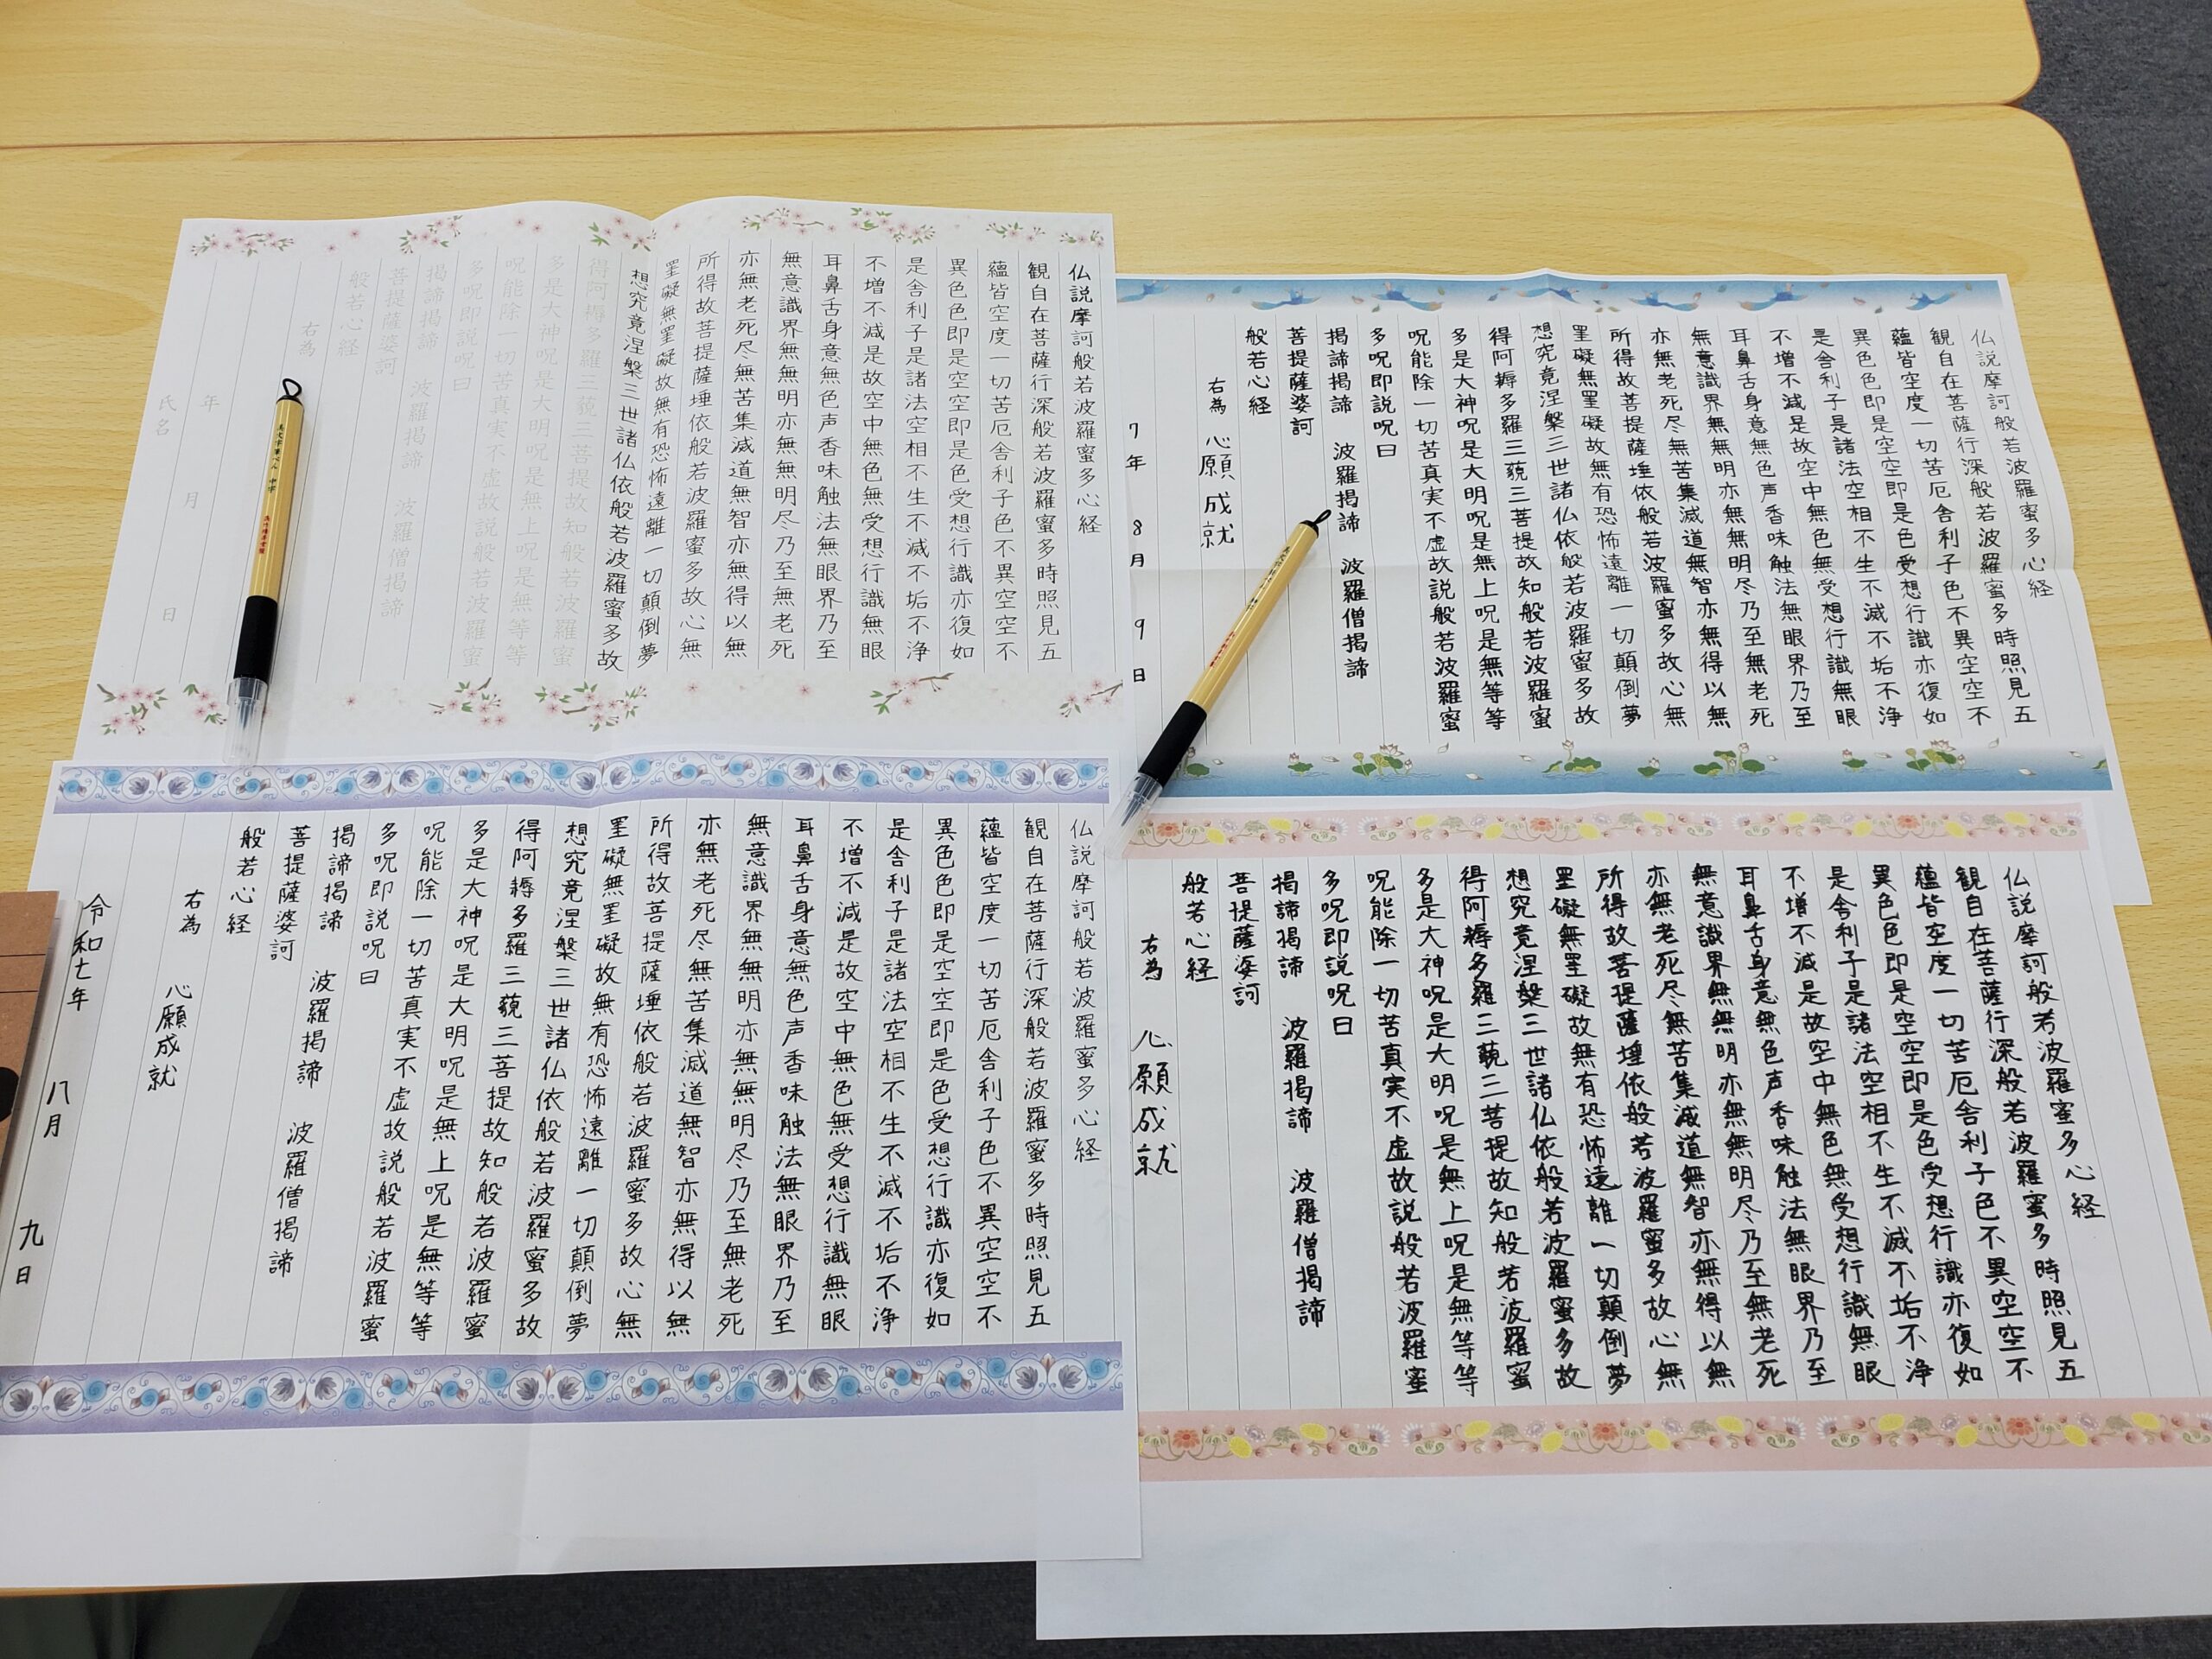 仏説摩訶般若波羅蜜多心経
観自在菩薩行深般若波羅蜜多時照見五
蘊皆空度一切苦厄舎利子色不異空空不
異色色即是空空即是色受想行識亦復如
是舎利子是諸法空相不生不滅不垢不浄
不増不減是故空中無色無受想行識無眼
耳鼻舌身意無色声香味触法無眼界乃至
無意識界無無明亦無無明尽乃至無老死
亦無老死尽無苦集滅道無智亦無得以無
所得故菩提薩埵依般若波羅蜜多故心無
罣礙無罣礙故無有恐怖遠離一切顛倒夢
想究竟涅槃三世諸仏依般若波羅蜜多故
得阿耨多羅三藐三菩提故知般若波羅蜜
多是大神呪是大明呪是無上呪是無等等
呪能除一切苦真実不虚故説般若波羅蜜
多呪即説呪曰
掲諦掲諦 波羅掲諦 波羅僧掲諦
菩提薩婆訶
般若心経
右為
年 月 日
氏名
仏説摩訶般若波羅蜜多心経
観自在菩薩行深般若波羅蜜多時照見五
蘊皆空度一切苦厄舎利子色不異空空不
異色色即是空空即是色受想行識亦復如
是舎利子是諸法空相不生不滅不垢不浄
不増不減是故空中無色無受想行識無眼
耳鼻舌身意無色声香味触法無眼界乃至
無意識界無無明亦無無明尽乃至無老死
亦無老死尽無苦集滅道無智亦無得以無
所得故菩提薩埵依般若波羅蜜多故心無
罣礙無罣礙故無有恐怖遠離一切顛倒夢
想究竟涅槃三世諸仏依般若波羅蜜多故
得阿耨多羅三藐三菩提故知般若波羅蜜
多是大神呪是大明呪是無上呪是無等等
呪能除一切苦真実不虚故説般若波羅蜜
多呪即説呪曰
掲諦掲諦 波羅掲諦 波羅僧掲諦
菩提薩婆訶
般若心経
右為 心願成就
7年 8月 9日
仏説摩訶般若波羅蜜多心経
観自在菩薩行深般若波羅蜜多時照見五
蘊皆空度一切苦厄舎利子色不異空空不
異色色即是空空即是色受想行識亦復如
是舎利子是諸法空相不生不滅不垢不浄
不増不減是故空中無色無受想行識無眼
耳鼻舌身意無色声香味触法無眼界乃至
無意識界無無明亦無無明尽乃至無老死
亦無老死尽無苦集滅道無智亦無得以無
所得故菩提薩埵依般若波羅蜜多故心無
罣礙無罣礙故無有恐怖遠離一切顛倒夢
想究竟涅槃三世諸仏依般若波羅蜜多故
得阿耨多羅三藐三菩提故知般若波羅蜜
多是大神呪是大明呪是無上呪是無等等
呪能除一切苦真実不虚故説般若波羅蜜
多呪即説呪曰
掲諦掲諦 波羅掲諦 波羅僧掲諦
菩提薩婆訶
般若心経
右為 心願成就
令和七年 八月 九日
仏説摩訶般若波羅蜜多心経
観自在菩薩行深般若波羅蜜多時照見五
蘊皆空度一切苦厄舎利子色不異空空不
異色色即是空空即是色受想行識亦復如
是舎利子是諸法空相不生不滅不垢不浄
不増不減是故空中無色無受想行識無眼
耳鼻舌身意無色声香味触法無眼界乃至
無意識界無無明亦無無明尽乃至無老死
亦無老死尽無苦集滅道無智亦無得以無
所得故菩提薩埵依般若波羅蜜多故心無
罣礙無罣礙故無有恐怖遠離一切顛倒夢
想究竟涅槃三世諸仏依般若波羅蜜多故
得阿耨多羅三藐三菩提故知般若波羅蜜
多是大神呪是大明呪是無上呪是無等等
呪能除一切苦真実不虚故説般若波羅蜜
多呪即説呪曰
掲諦掲諦 波羅掲諦 波羅僧掲諦
菩提薩婆訶
般若心経
右為 心願成就